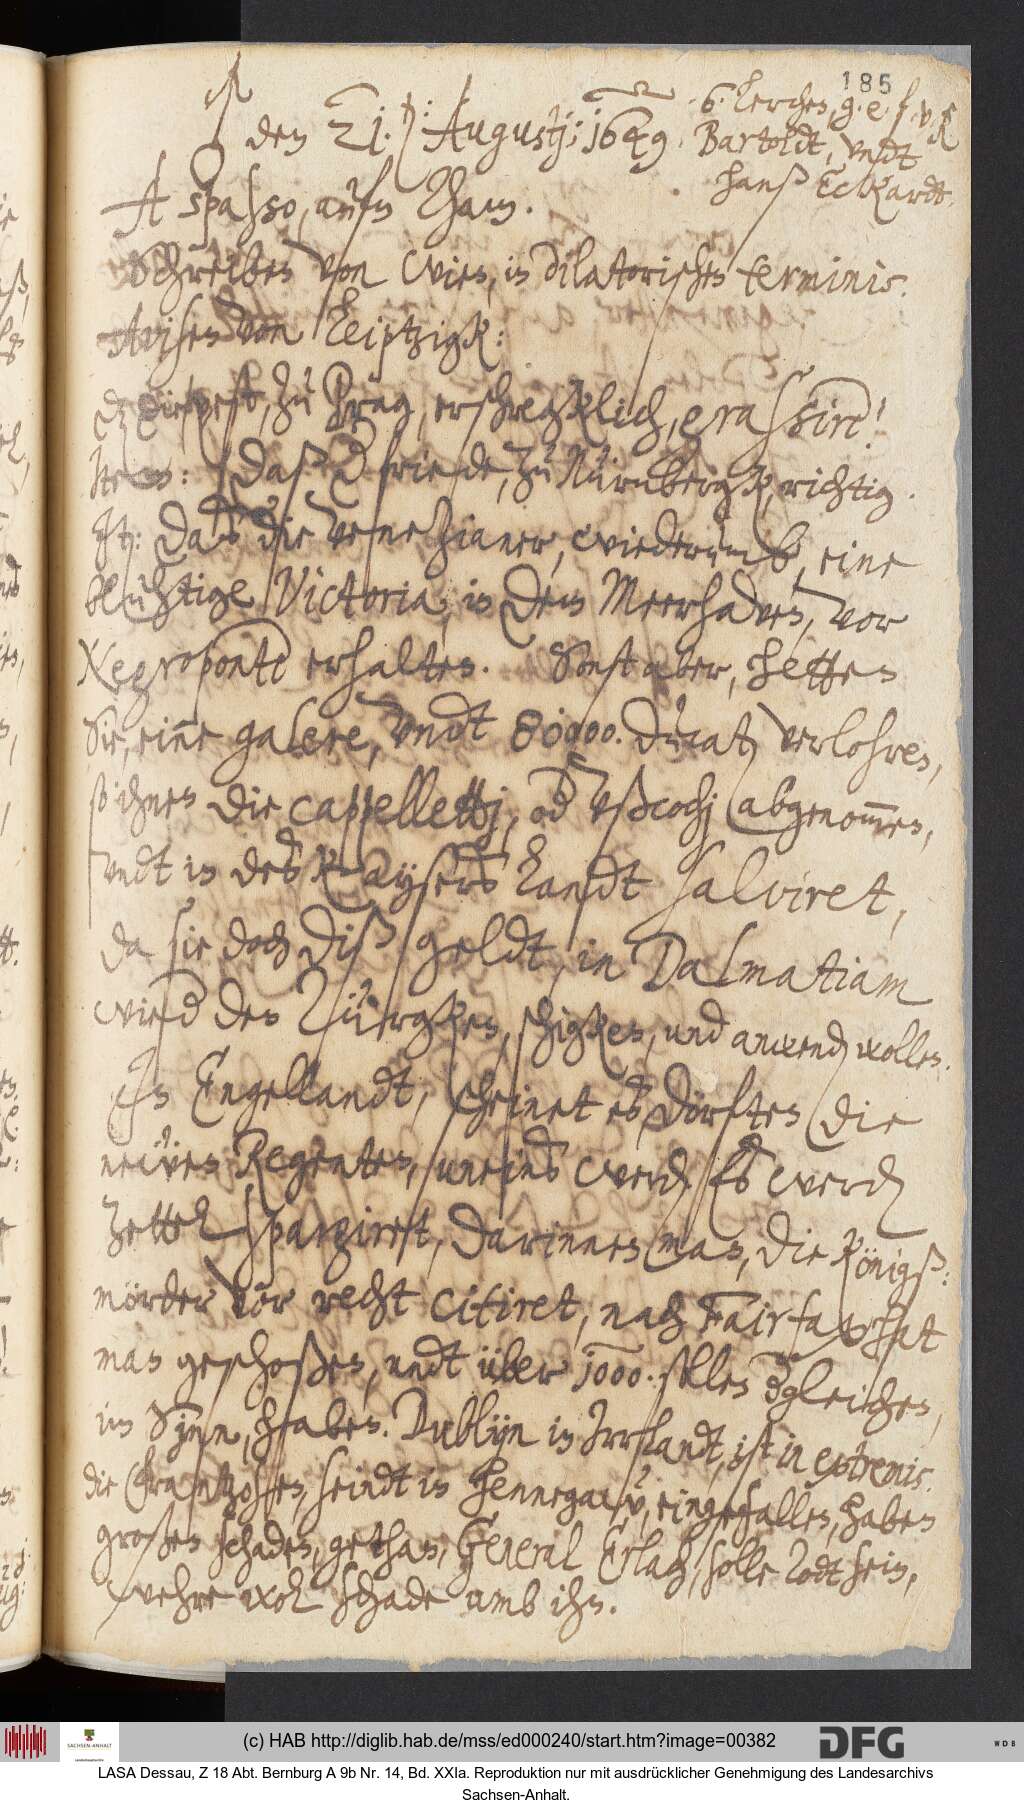 185
den 21. Augustj; 1649.
6. Lerchen, g. e.
Bartoldt, vndt
Hanß Eckardt.
A spasso, aufm Tham.
Schreiben von Wien, in dilatorischen terminis.
Avisen von Leiptzigk:
dz die pest, zu Prag, erschregklich, grassirt!
Item: daß der friede, zu Nürnbergk, richtig.
It: daß die Venezianer, wiederumb, eine
bluhtige Victoria, in dem Meerhaven, vor
Negroponte erhalten. Sonst aber, hetten
Sie, eine galere, vndt 80000. Ducaten verlohren,
so ihnen die cappellettj, oder Vßcochj abgenommen,
vndt in des Kaysers Landt salviret,
da sie doch diß geldt, in Dalmatiam
wieder den Türgken, schigken, und anwenden wollen.
In Engellandt, scheinet es, dörften die
neẅen Regenten, uneins werden. Es werden
zettel spargiret, darinnen man, die Königß:
mörder vor recht citiret, nach Fairfax hat
man geschoßen, undt über 1000. sollen dergleichen,
im Sinn, haben. Dublijn in Irrlandt, ist in extremis.
die Frantzosen, seindt in Hennegaw, eingefallen, haben
großen schaden, gethan, General Erlach, solle Todt sein,
wehre wol schade umb ihn.
(c) HAB http://diglib.hab.de/mss/ed000240/start.htm?image=00382
SACHSEN-ANHALT
DFG
WDB
LASA Dessau, Z 18 Abt. Bernburg A 9b Nr. 14, Bd. XXIa. Reproduktion nur mit ausdrücklicher Genehmigung des Landesarchivs
Sachsen-Anhalt.